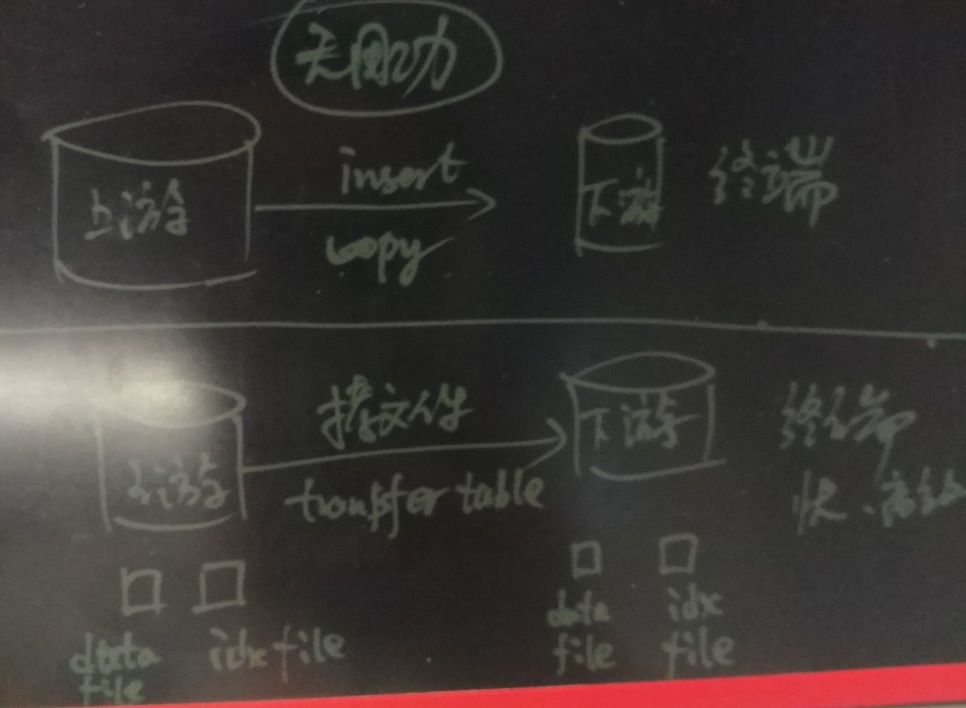 无用功
insert
上游
copy
下游
终端
拷文件
上游
transfer table
下游
终端
快、高效
data
file
idx file
data
file
idx
file